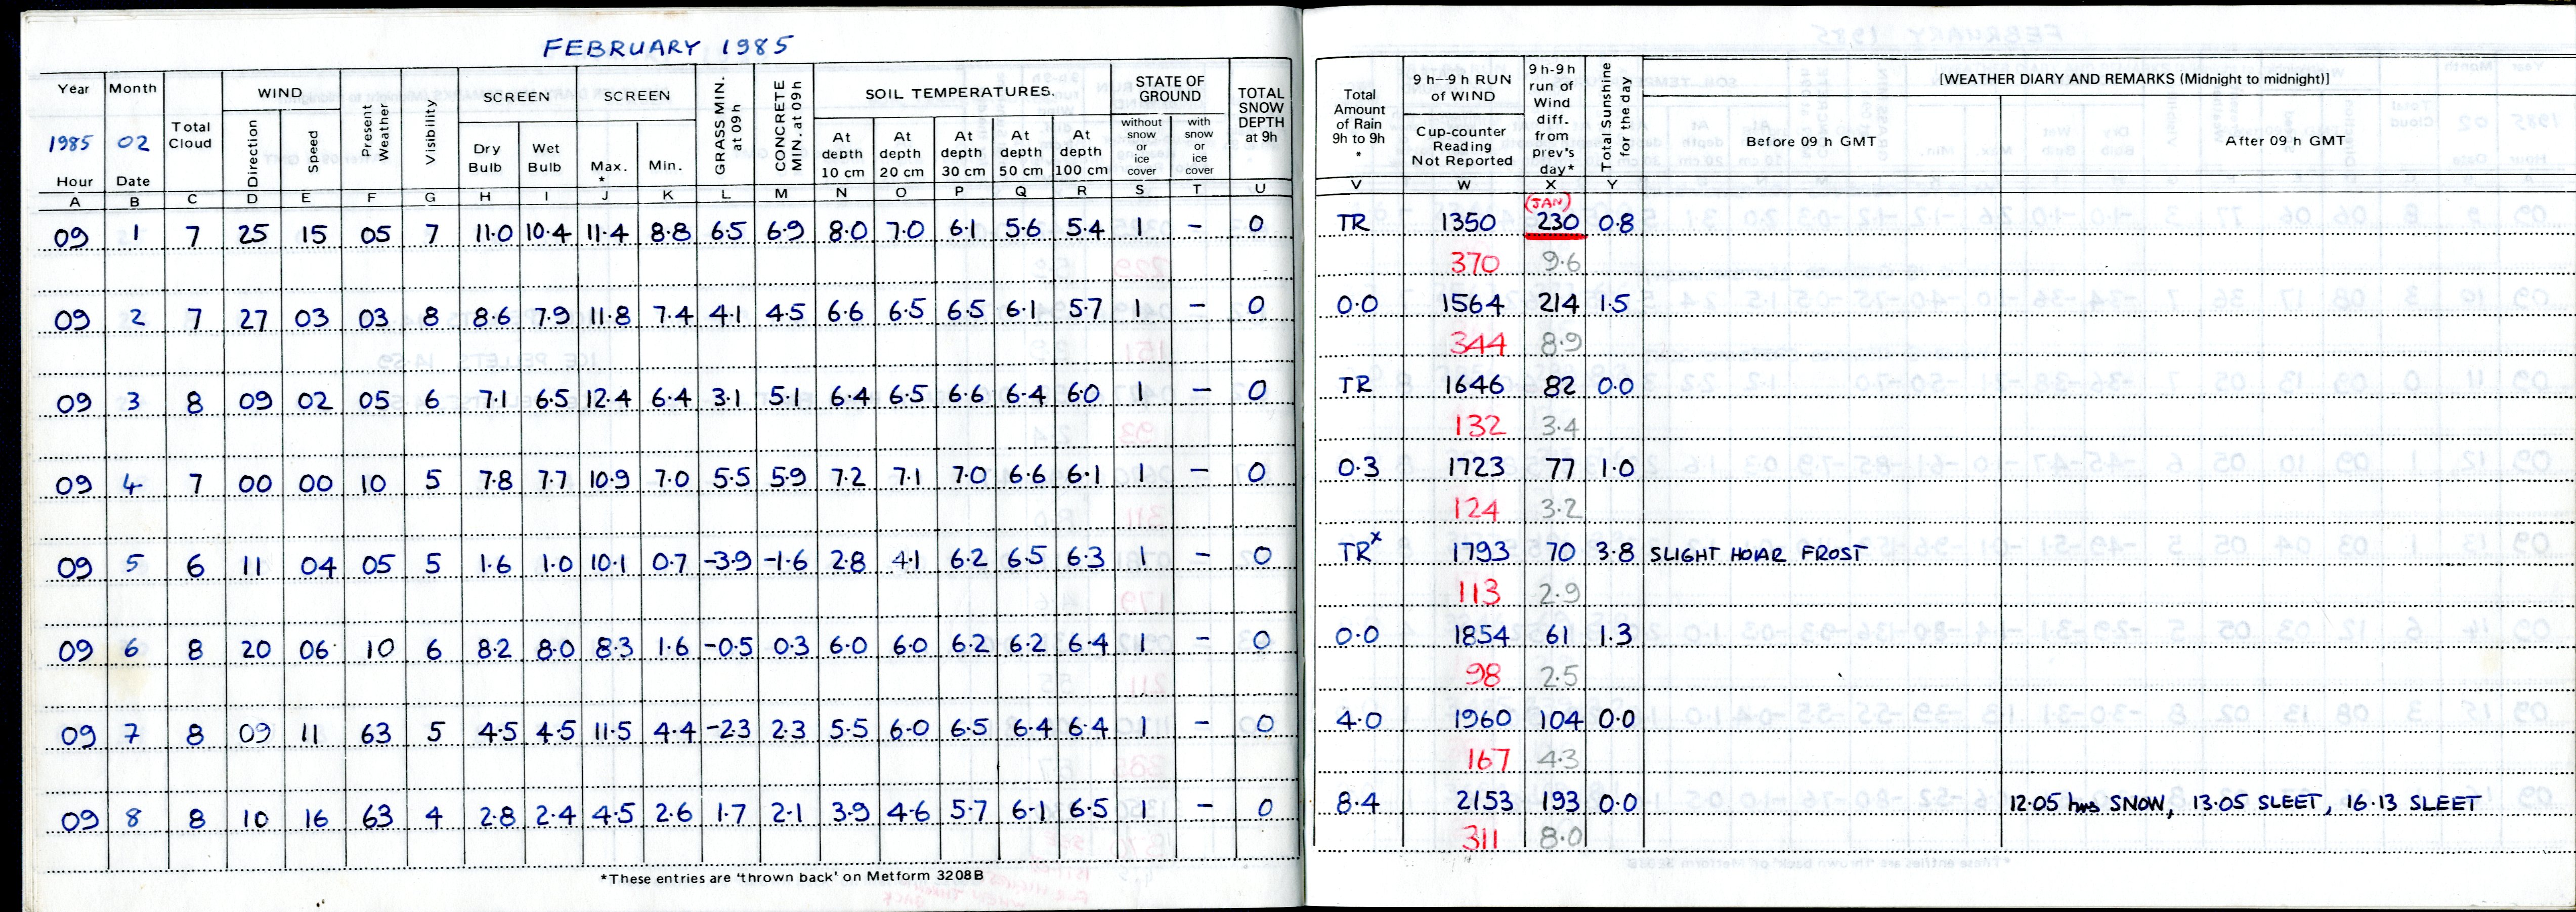 FEBRUARY 1985
Year Month WIND SCREEN SCREEN SOIL TEMPERATURES. STATE OF GROUND TOTAL SNOW DEPTH at 9h
1985 02 Total Cloud Direction Speed Present Weather Visibility Dry Bulb Wet Bulb Max. * Min. GRASS MIN. at 09h CONCRETE MIN. at 09h At depth 10 cm At depth 20 cm At depth 30 cm At depth 50 cm At depth 100 cm without snow or ice cover with snow or ice cover
Hour Date
A B C D E F G H I J K L M N O P Q R S T U
09 1 7 25 15 05 7 11.0 10.4 11.4 8.8 6.5 6.9 8.0 7.0 6.1 5.6 5.4 1 – 0
09 2 7 27 03 03 8 8.6 7.9 11.8 7.4 4.1 4.5 6.6 6.5 6.5 6.1 5.7 1 – 0
09 3 8 09 02 05 6 7.1 6.5 12.4 6.4 3.1 5.1 6.4 6.5 6.6 6.4 6.0 1 – 0
09 4 7 00 00 10 5 7.8 7.7 10.9 7.0 5.5 5.9 7.2 7.1 7.0 6.6 6.1 1 – 0
09 5 6 11 04 05 5 1.6 1.0 10.1 0.7 -3.9 -1.6 2.8 4.1 6.2 6.5 6.3 1 – 0
09 6 8 20 06 10 6 8.2 8.0 8.3 1.6 -0.5 0.3 6.0 6.0 6.2 6.2 6.4 1 – 0
09 7 8 09 11 63 5 4.5 4.5 11.5 4.4 -2.3 2.3 5.5 6.0 6.5 6.4 6.4 1 – 0
09 8 8 10 16 63 4 2.8 2.4 4.5 2.6 1.7 2.1 3.9 4.6 5.7 6.1 6.5 1 – 0
*These entries are 'thrown back' on Metform 3208B
Total Amount of Rain 9h to 9h * 9 h—9 h RUN of WIND Cup-counter Reading Not Reported 9 h-9 h run of Wind diff. from prev's day* Total Sunshine for the day [WEATHER DIARY AND REMARKS (Midnight to midnight)]
Before 09 h GMT After 09 h GMT
V W X Y
(JAN)
TR 1350 230 0.8
370 9.6
0.0 1564 214 1.5
344 8.9
TR 1646 82 0.0
132 3.4
0.3 1723 77 1.0
124 3.2
TRx 1793 70 3.8 SLIGHT HOAR FROST
113 2.9
0.0 1854 61 1.3
98 2.5
4.0 1960 104 0.0
167 4.3
8.4 2153 193 0.0 12.05 hrs SNOW, 13.05 SLEET, 16.13 SLEET
311 8.0